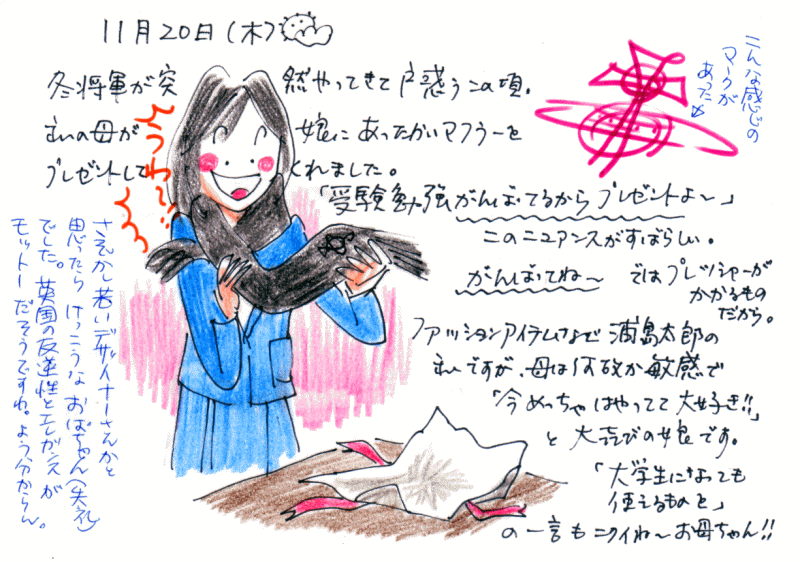 11月20日(木)
冬将軍が突然やってきて戸惑うこの頃。
私の母が娘にあったかいマフラーを
プレゼントしてくれました。
「受験勉強がんばってるからプレゼントよ〜」
このニュアンスがすばらしい。
がんばってね〜ではプレッシャーが
かかるもの
だから。
ファッションアイテムなど浦島太郎の
私ですが、母は何故か敏感で
「今めっちゃはやってて大好き!!」
と大喜びの娘です。
「大学生になっても
使えるものを」
の一言もニクイね〜お母ちゃん!!
うわ〜!!
こんな感じの
マークが
あった
さぞかし若いデザイナーさんかと
思ったらけっこうなおばちゃん(失礼)
でした。英国の反逆性とエレガンスが
モットーだそうですね。よう分からん。